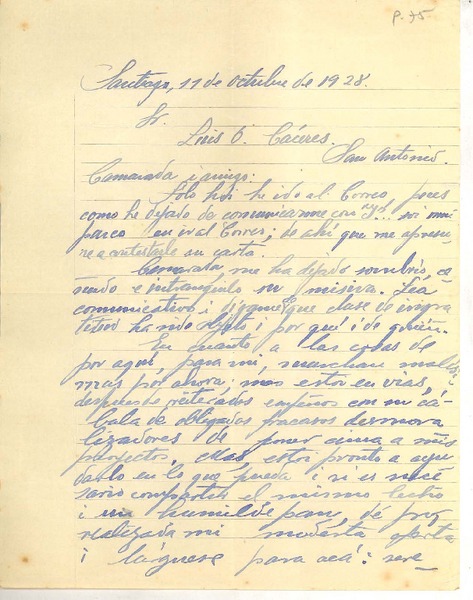 P. 75
Santiago, 11 de octubre de 1928.
Sr.
Luis O. Cáceres.
San Antonio.
Camarada i amigo:
Sólo hoi he ido al Correo, pues
como he dejado de comunicarme con soi mui
parco en ir al Correo; de ahí que me apresu-
re a contestarle su carta.
Camarada, me ha dejado sombrío, 
e intranquilo su misiva. Sea
comunicativo i dígame que clase de 
ha sido objeto i por qué i de quién.
En cuanto a las cosas de
por aquí, para mí, marchan mali-
mas por ahora; mas estoi en vías,
después de reiterados empeños con mi cá-
bala de obligados fracasos desmora
lizadores de poner cima a mis
proyectos, estoi pronto a ayu
darlo en lo que pueda i si es nece
sario compartir el mismo techo
i un humilde pan, de 
realizada mi modesta oferta
i lárguese para acá: sere-